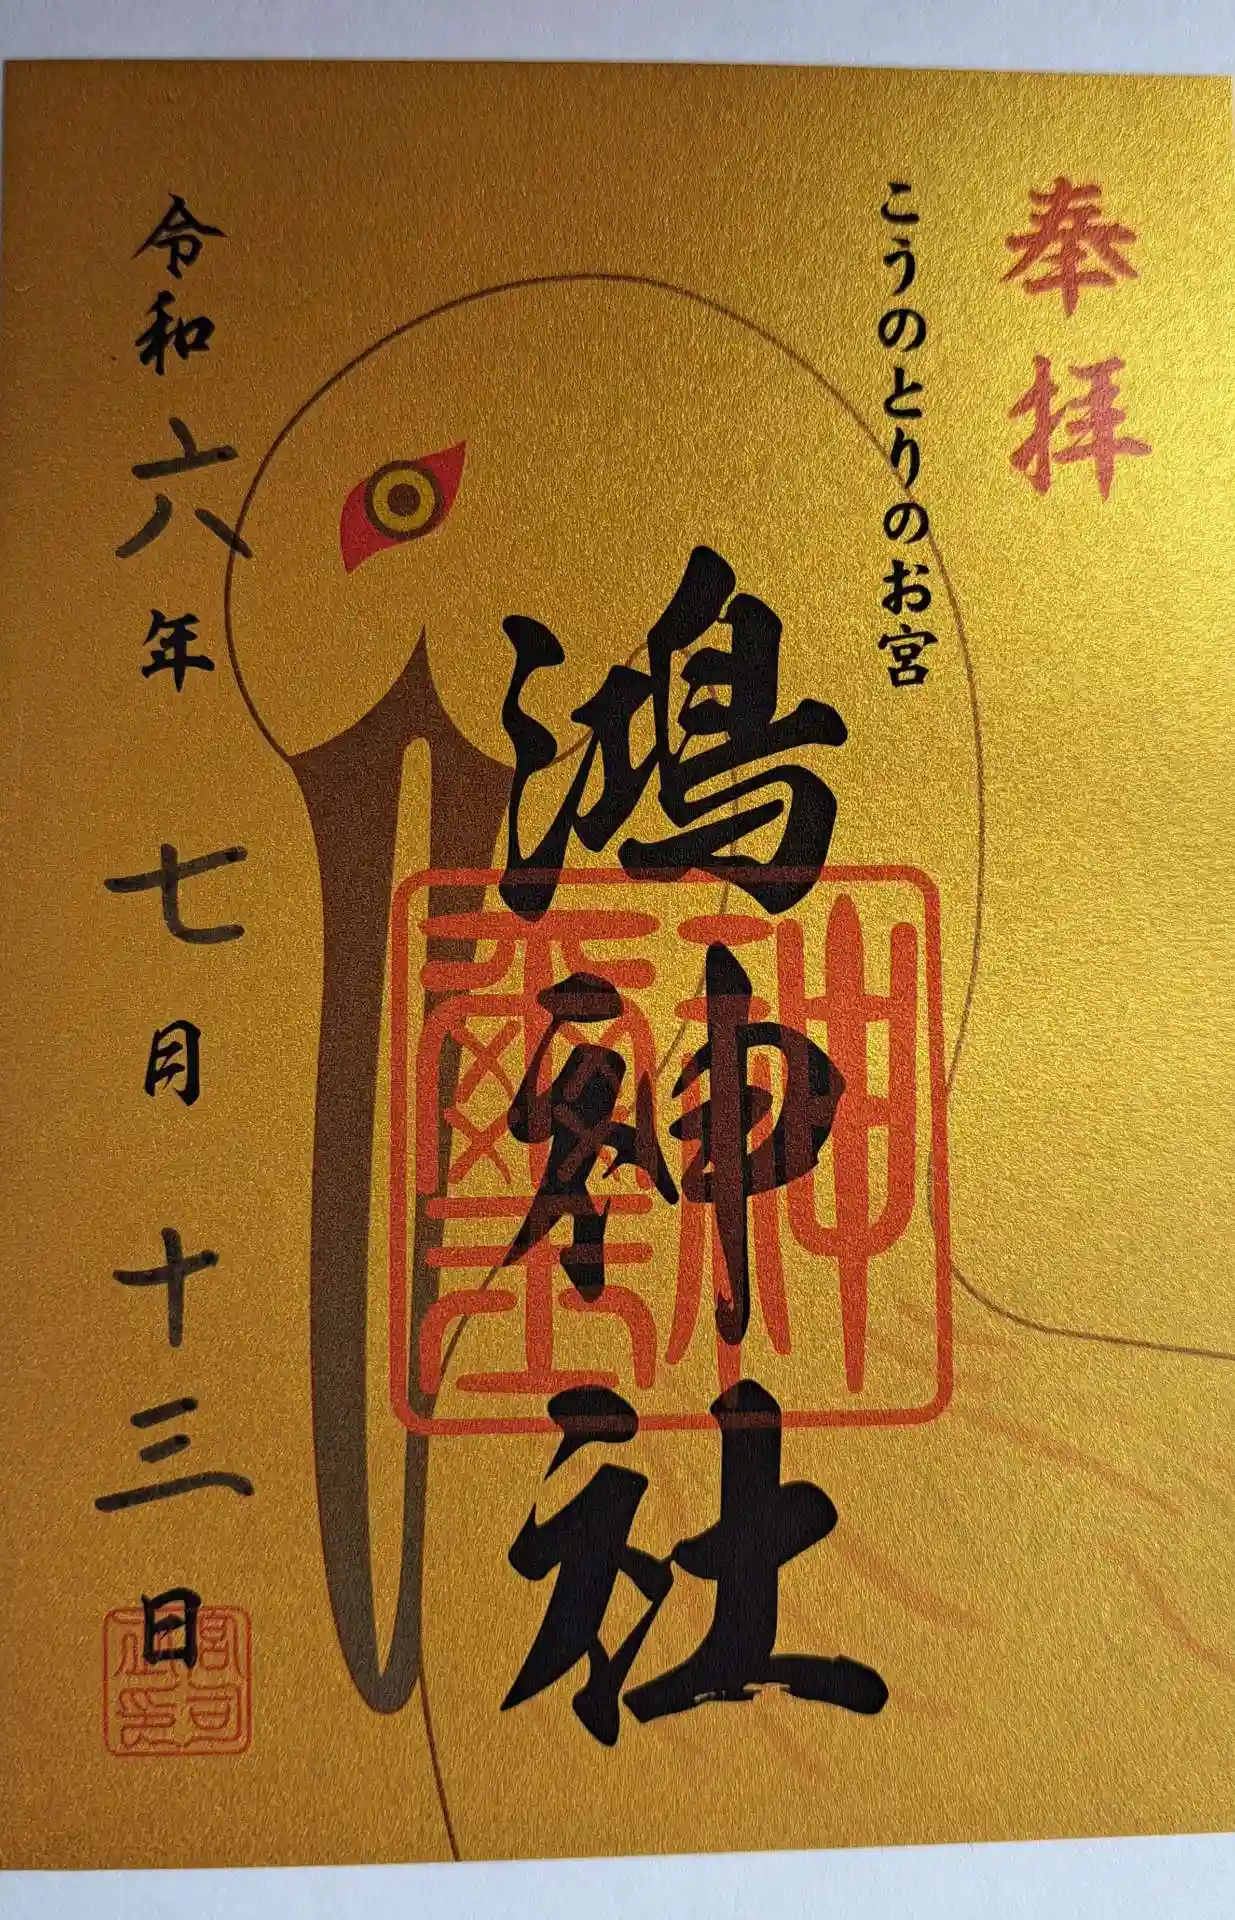 奉拝
こうのとりのお宮
鴻神社
神璽
令和六年七月十三日
宮司之印